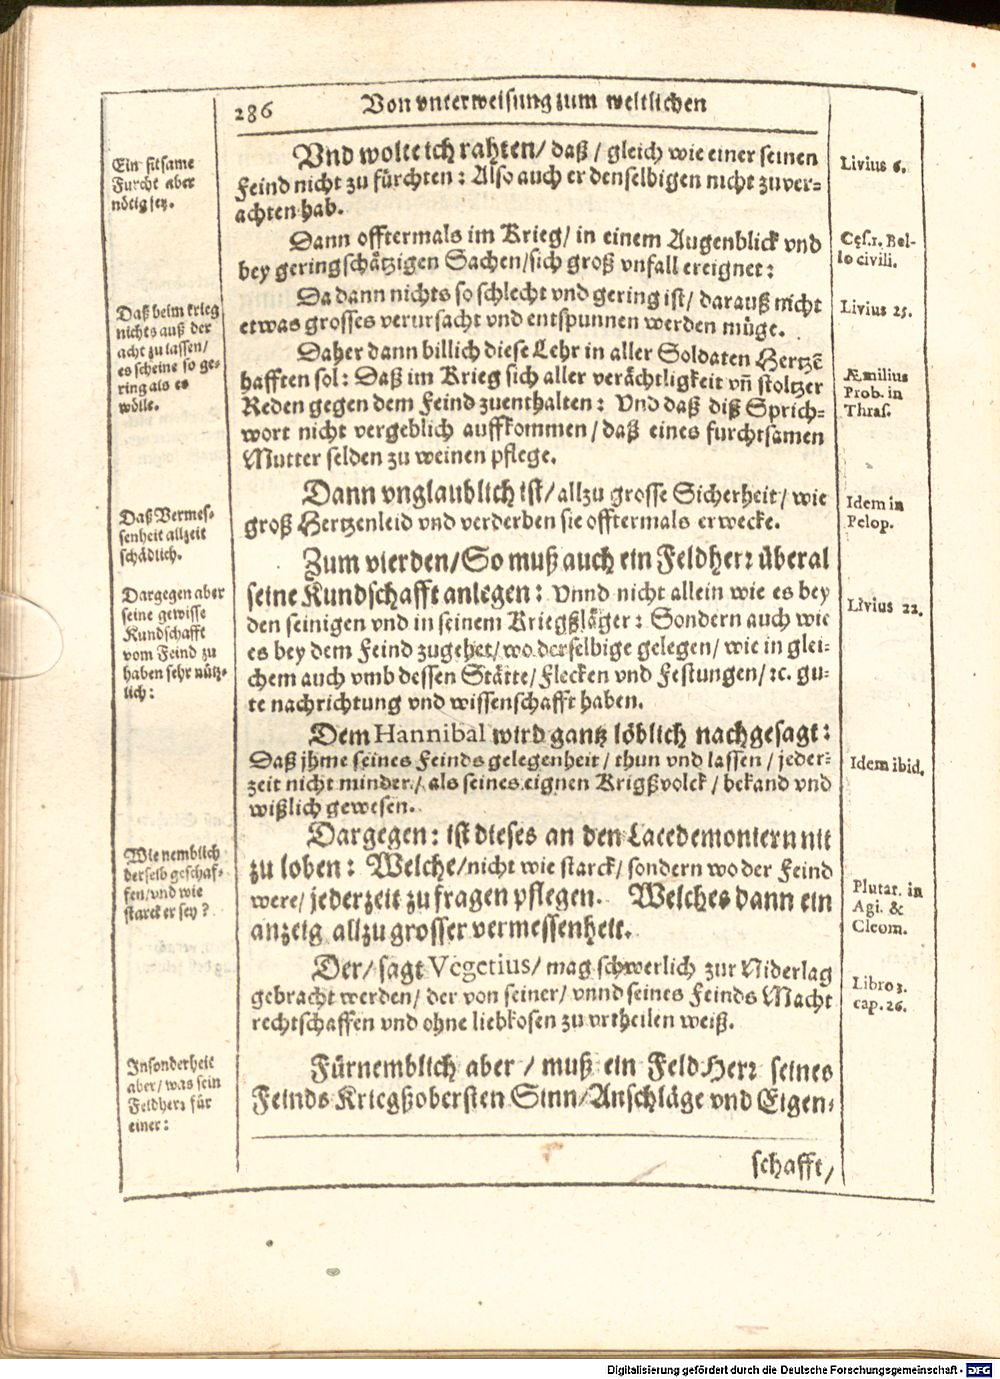 286 Von vnterweisung zum weltlichen
Ein sitsame
Furcht aber
nötig sey.
Vnd wolte ich rahten/ daß/ gleich wie einer seinen
Feind nicht zu fürchten: Also auch er denselbigen nicht zuver-
achten hab.
Livius 6.
Dann offtermals im Krieg/ in einem Augenblick vnd
bey geringschätzigen Sachen/sich groß vnfall ereignet:
Cęs. 1. Bel-
lo civili.
Daß beim krieg
nichts auß der
acht zu lassen/
es scheine so ge-
ring als es
wölle.
Da dann nichts so schlecht vnd gering ist/ darauß nicht
etwas grosses verursacht vnd entspunnen werden müge.
Livius 25.
Daher dann billich diese Lehr in aller Soldaten Hertzē
hafften sol: Daß im Krieg sich aller verächtligkeit vñ stoltzer
Reden gegen dem Feind zuenthalten: Vnd daß diß Sprich-
wort nicht vergeblich auffkommen/ daß eines furchtsamen
Mutter selden zu weinen pflege.
Æmilius
Prob. in
Thras.
Daß Vermes-
senheit allzeit
schädlich.
Dann vnglaublich ist/ allzu grosse Sicherheit/ wie
groß Hertzenleid vnd verderben sie offtermals erwecke.
Idem in
Pelop.
Dargegen aber
seine gewisse
Kundschafft
vom Feind zu
haben sehr nütz-
lich:
Zum vierden/ So muß auch ein Feldherꝛ überal
seine Kundschafft anlegen: Vnnd nicht allein wie es bey
den seinigen vnd in seinem Kriegßläger: Sondern auch wie
es bey dem Feind zugehet/ wo derselbige gelegen/ wie in glei-
chem auch vmb dessen Stätte/ Flecken vnd Festungen/ ꝛc. gu-
te nachrichtung vnd wissenschafft haben.
Livius 22.
Dem Hannibal wird gantz löblich nachgesagt:
Daß jhme seines Feinds gelegenheit/ thun vnd lassen/ jeder-
zeit nicht minder/ als seines eignen Krigßvolck/ bekand vnd
wißlich gewesen.
Idem ibid.
Wie nemblich
derselb geschaf-
fen/ vnd wie
starck er sey?
Dargegen: ist dieses an den Lacedemoniern nit
zu loben: Welche/ nicht wie starck/ sondern wo der Feind
were/ jederzeit zu fragen pflegen. Welches dann ein
anzeig allzu grosser vermessenheit.
Plutar. in
Agi. &
Cleom.
Der/ sagt Vegetius/ mag schwerlich zur Niderlag
gebracht werden/ der von seiner/ vnnd seines Feinds Macht
rechtschaffen vnd ohne liebkosen zu vrtheilen weiß.
Libro 3.
cap. 26.
Insonderheit
aber/ was sein
Feldherꝛ für
einer:
Fürnemblich aber/ muß ein FeldHerꝛ seines
Feinds Kriegßobersten Sinn/ Anschläge vnd Eigen-
schafft/
Digitalisierung gefördert durch die Deutsche Forschungsgemeinschaft - DFG